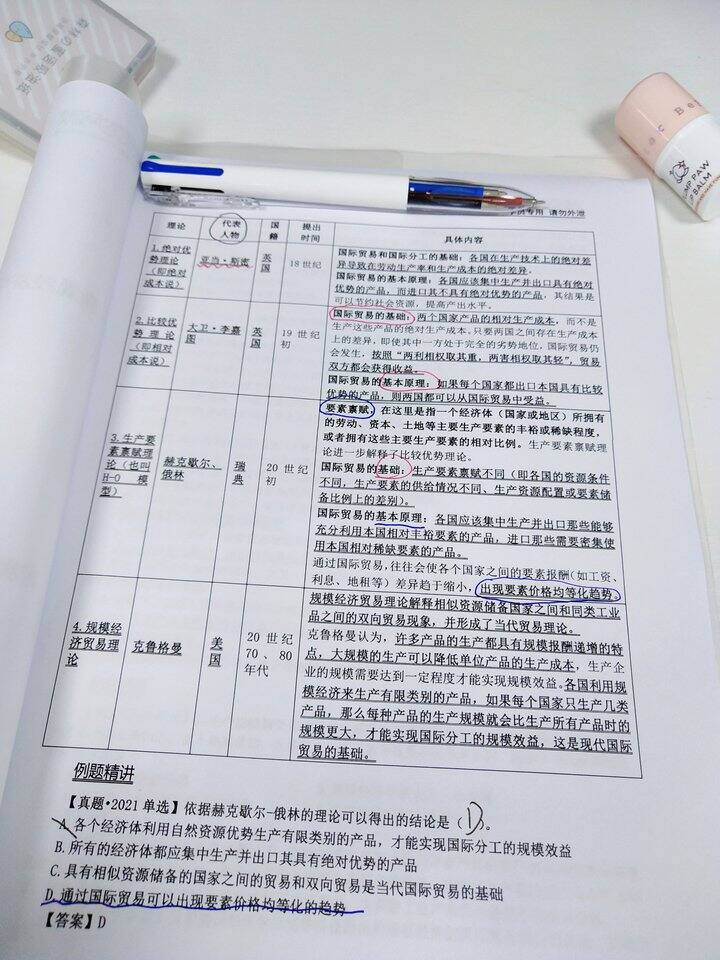 学员专用 请勿外泄
理论 代表人物 国籍 提出时间 具体内容
1.绝对优势理论（即绝对成本说） 亚当·斯密 英国 18世纪
国际贸易和国际分工的基础：各国在生产技术上的绝对差
异导致在劳动生产率和生产成本的绝对差异．
国际贸易的基本原理：各国应该集中生产并出口具有绝对
优势的产品，而进口其不具有绝对优势的产品，其结果是
可以节约社会资源，提高产出水平。
2.比较优势理论（即相对成本说） 大卫·李嘉图 英国 19世纪初
国际贸易的基础：两个国家产品的相对生产成本，而不是
生产这些产品的绝对生产成本。只要两国之间存在生产成本
上的差异，即使其中一方处于完全的劣势地位，国际贸易仍
会发生，按照“两利相权取其重，两害相权取其轻”，贸易
双方都会获得收益。
国际贸易的基本原理：如果每个国家都出口本国具有比较
优势的产品，则两国都可以从国际贸易中受益。
3.生产要素禀赋理论（也叫H-O模型） 赫克歇尔、俄林 瑞典 20世纪初
要素禀赋，在这里是指一个经济体（国家或地区）所拥有
的劳动、资本、土地等主要生产要素的丰裕或稀缺程度，
或者拥有这些主要生产要素的相对比例。生产要素禀赋理
论进一步解释了比较优势理论。
国际贸易的基础：生产要素禀赋不同（即各国的资源条件
不同，生产要素的供给情况不同、生产资源配置或要素储
备比例上的差别）。
国际贸易的基本原理：各国应该集中生产并出口那些能够
充分利用本国相对丰裕要素的产品，进口那些需要密集使
用本国相对稀缺要素的产品。
通过国际贸易，往往会使各个国家之间的要素报酬（如工资、
利息、地租等）差异趋于缩小，出现要素价格均等化趋势。
4.规模经济贸易理论 克鲁格曼 美国 20世纪70、80年代
规模经济贸易理论解释相似资源储备国家之间和同类工业
品之间的双向贸易现象，并形成了当代贸易理论。
克鲁格曼认为，许多产品的生产都具有规模报酬递增的特
点，大规模的生产可以降低单位产品的生产成本，生产企
业的规模需要达到一定程度才能实现规模效益。各国利用规
模经济来生产有限类别的产品，如果每个国家只生产几类
产品，那么每种产品的生产规模就会比生产所有产品时的
规模更大，才能实现国际分工的规模效益，这是现代国际
贸易的基础。
例题精讲
【真题·2021 单选】依据赫克歇尔-俄林的理论可以得出的结论是（D）。
A.各个经济体利用自然资源优势生产有限类别的产品，才能实现国际分工的规模效益
B.所有的经济体都应集中生产并出口其具有绝对优势的产品
C.具有相似资源储备的国家之间的贸易和双向贸易是当代国际贸易的基础
D.通过国际贸易可以出现要素价格均等化的趋势
【答案】D
PAW
BALM